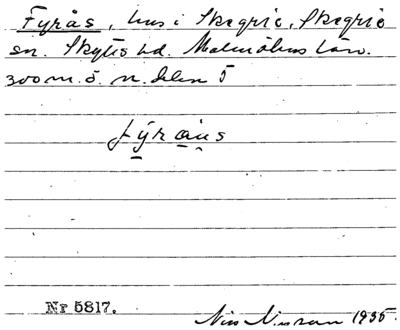 Fyrås, hus i Skegrie, Skegrie
sn. Skytts hd. Malmöhus län.
300 m. ö. n.
fýraus
Nr 5817.
Nils Nilsson 1935.